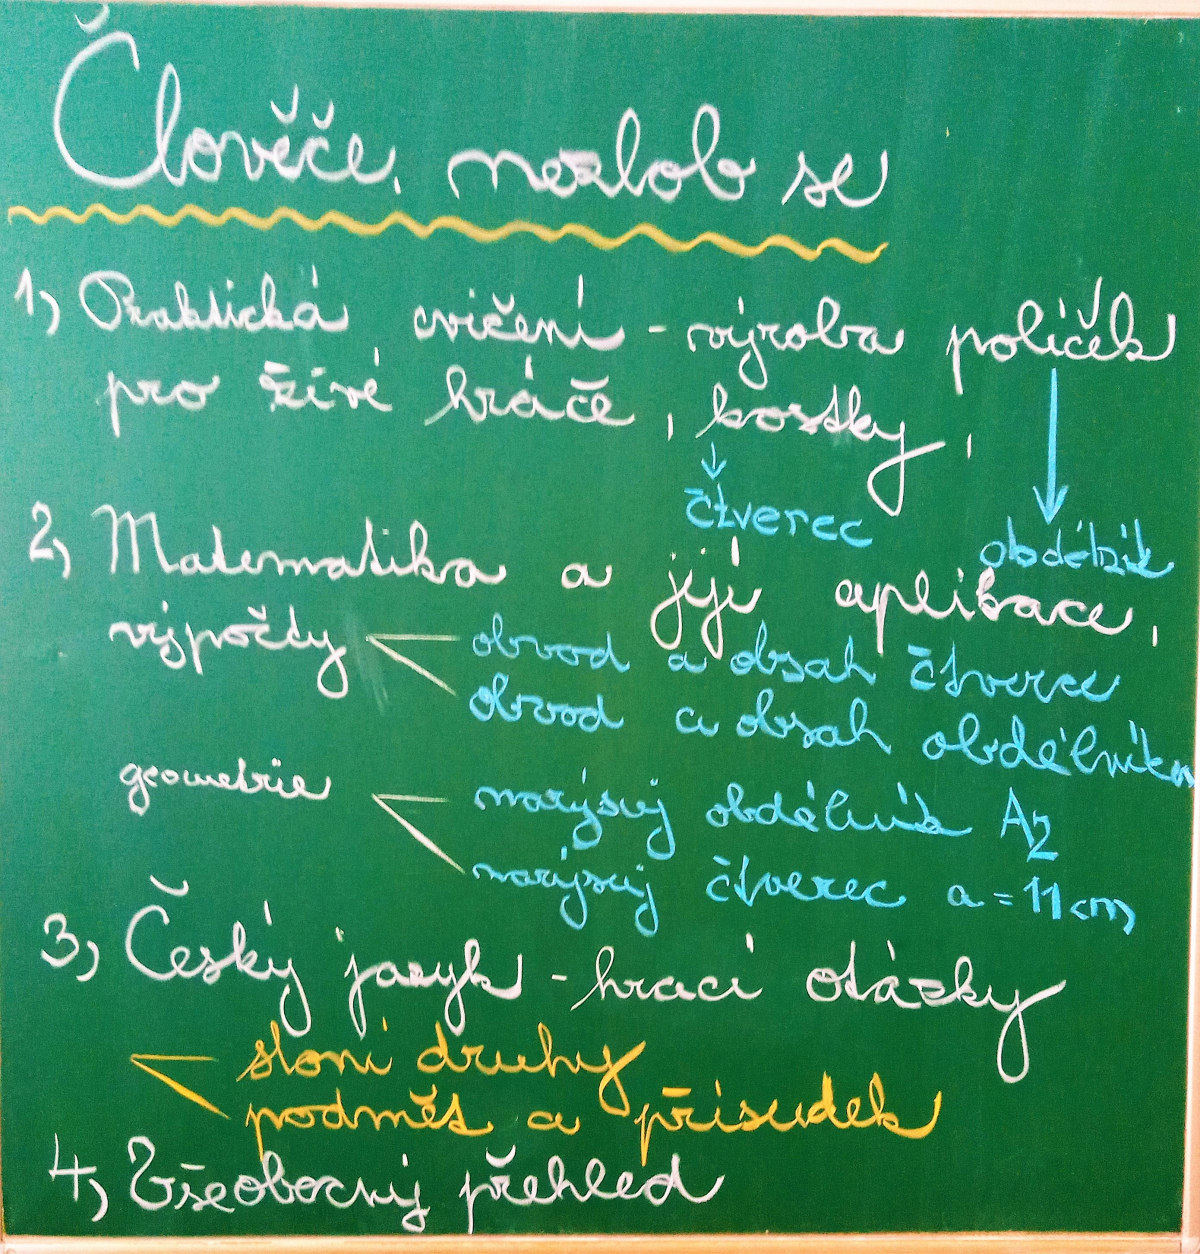 Člověče, nezlob se
1, Praktická cvičení - výroba políček
pro živé hráče, kostky,
čtverec
obdélník
2, Matematika a její aplikace,
výpočty
obvod a obsah čtverce
obvod a obsah obdélníku
geometrie
narýsuj obdélník A2
narýsuj čtverec a = 11 cm
3, Český jazyk - hrací otázky
slovní druhy
podmět a přísudek
4, Všeobecný přehled